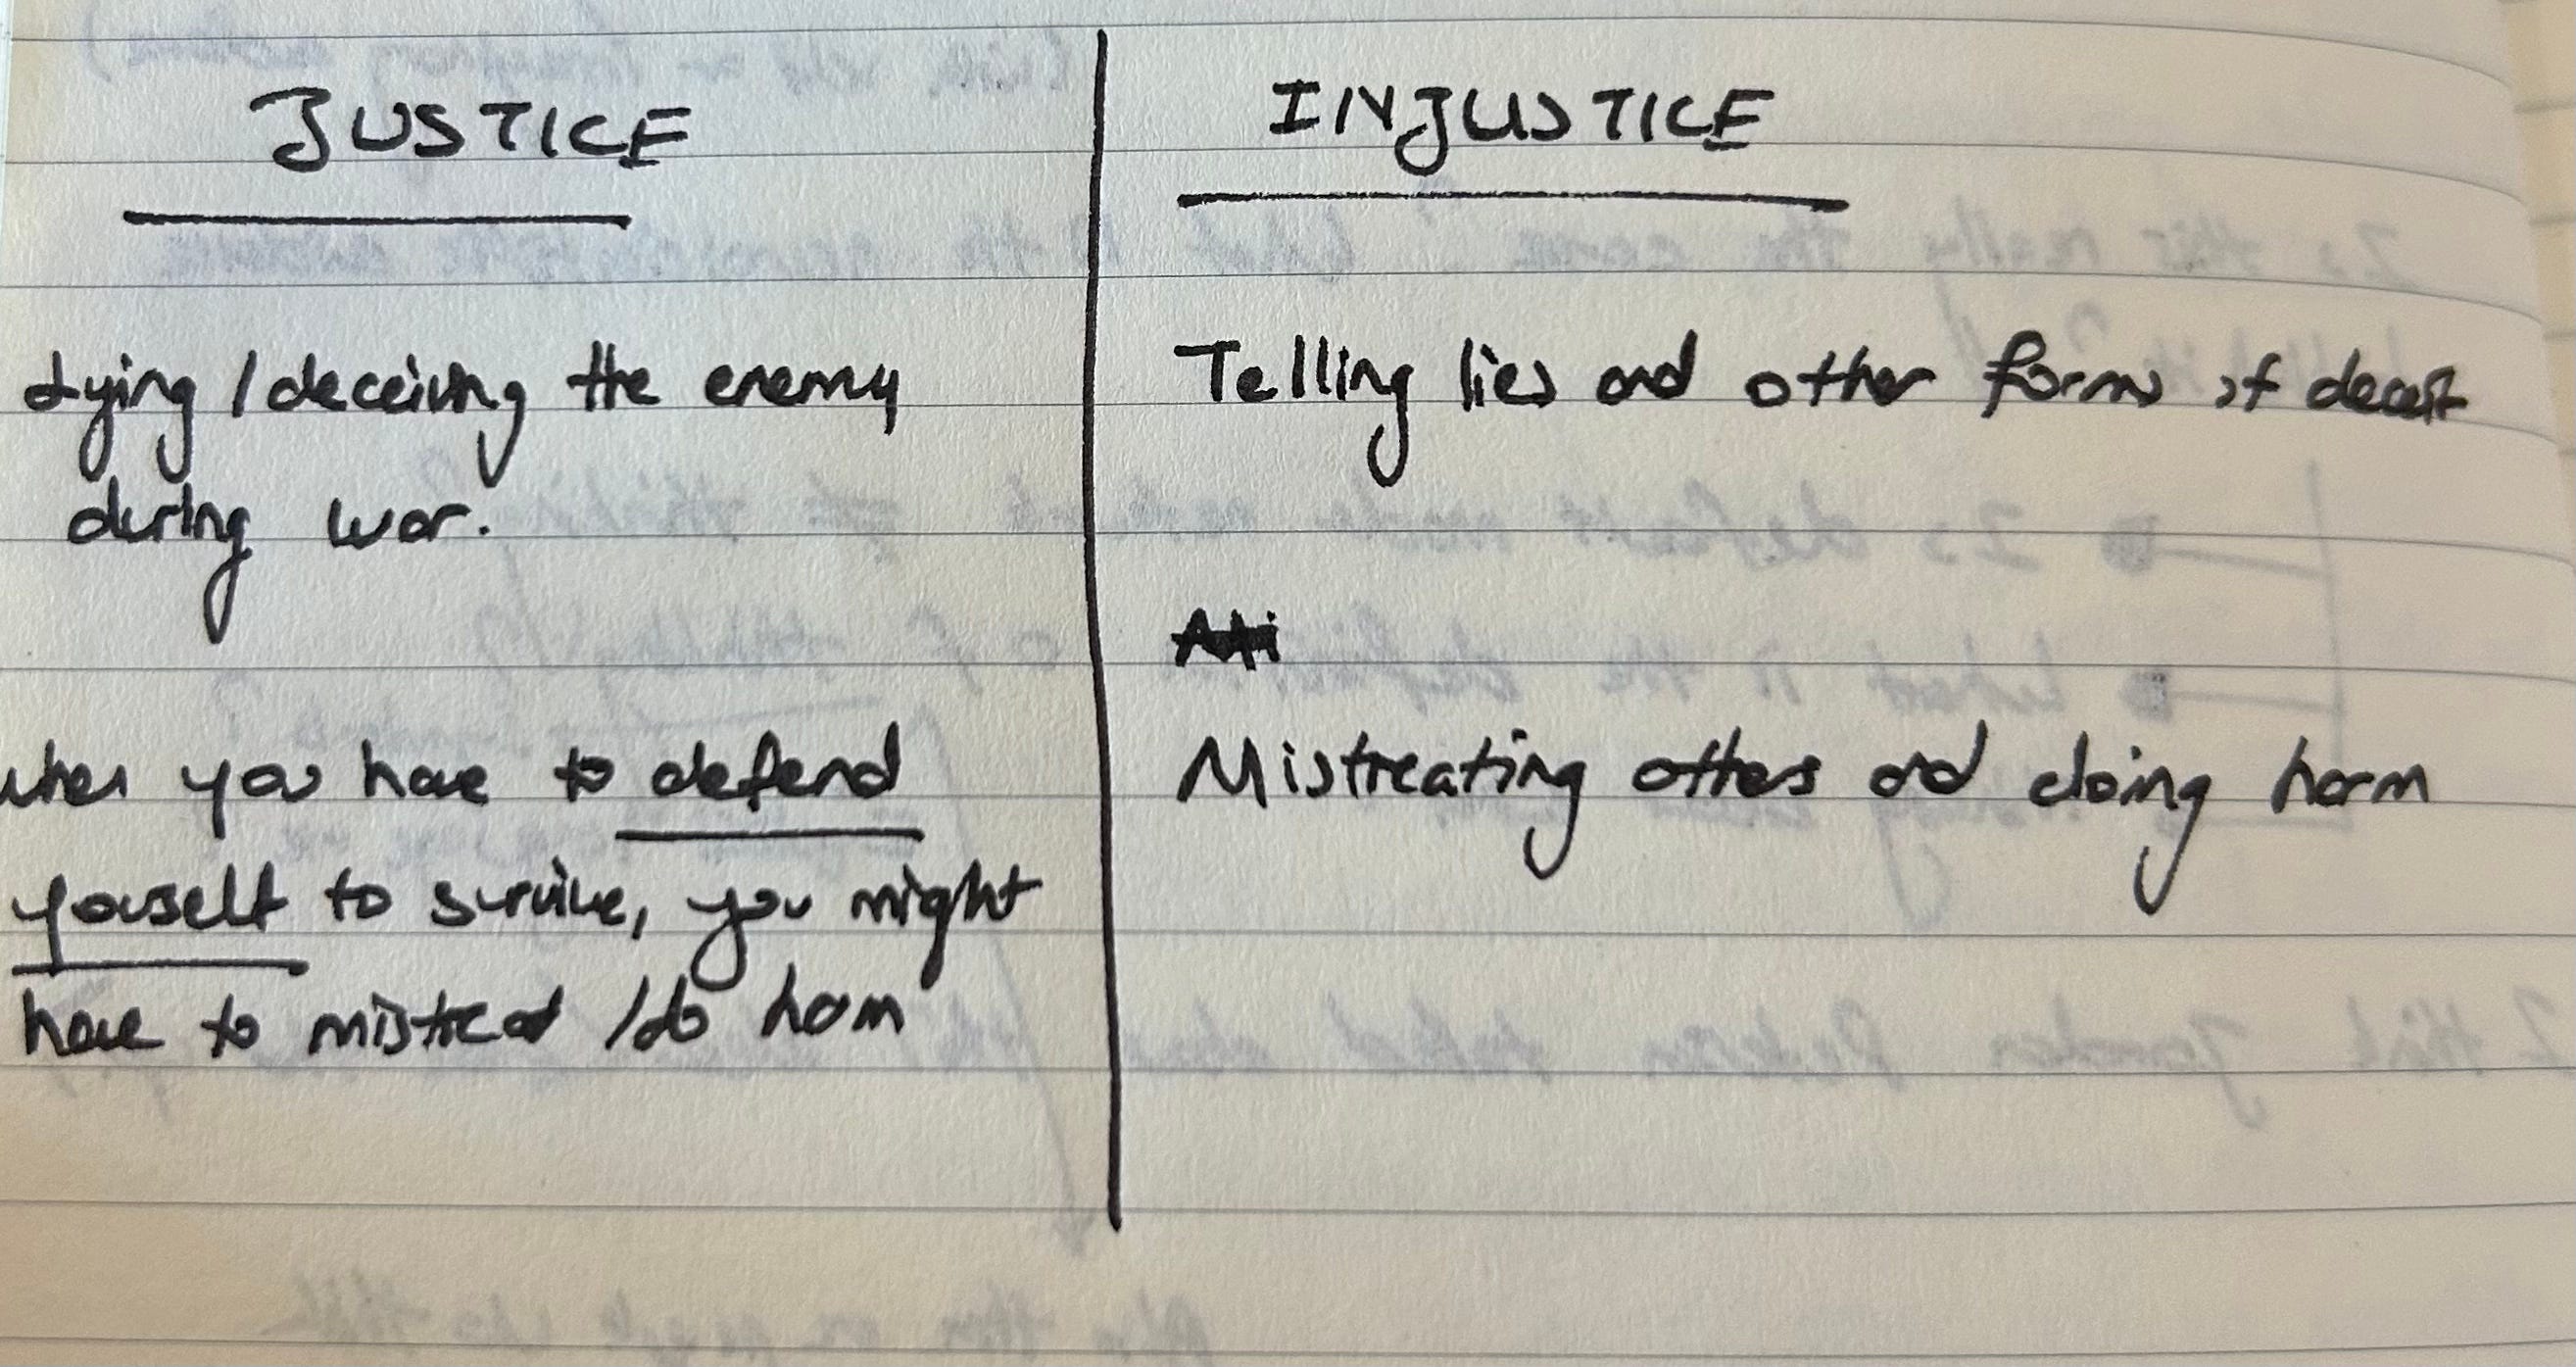 JUSTICE
lying / deceiving the enemy
during war.
when you have to defend
yourself to survive, you might
have to mistreat / do harm
INJUSTICE
Telling lies and other forms of deceit
Mistreating others and doing harm